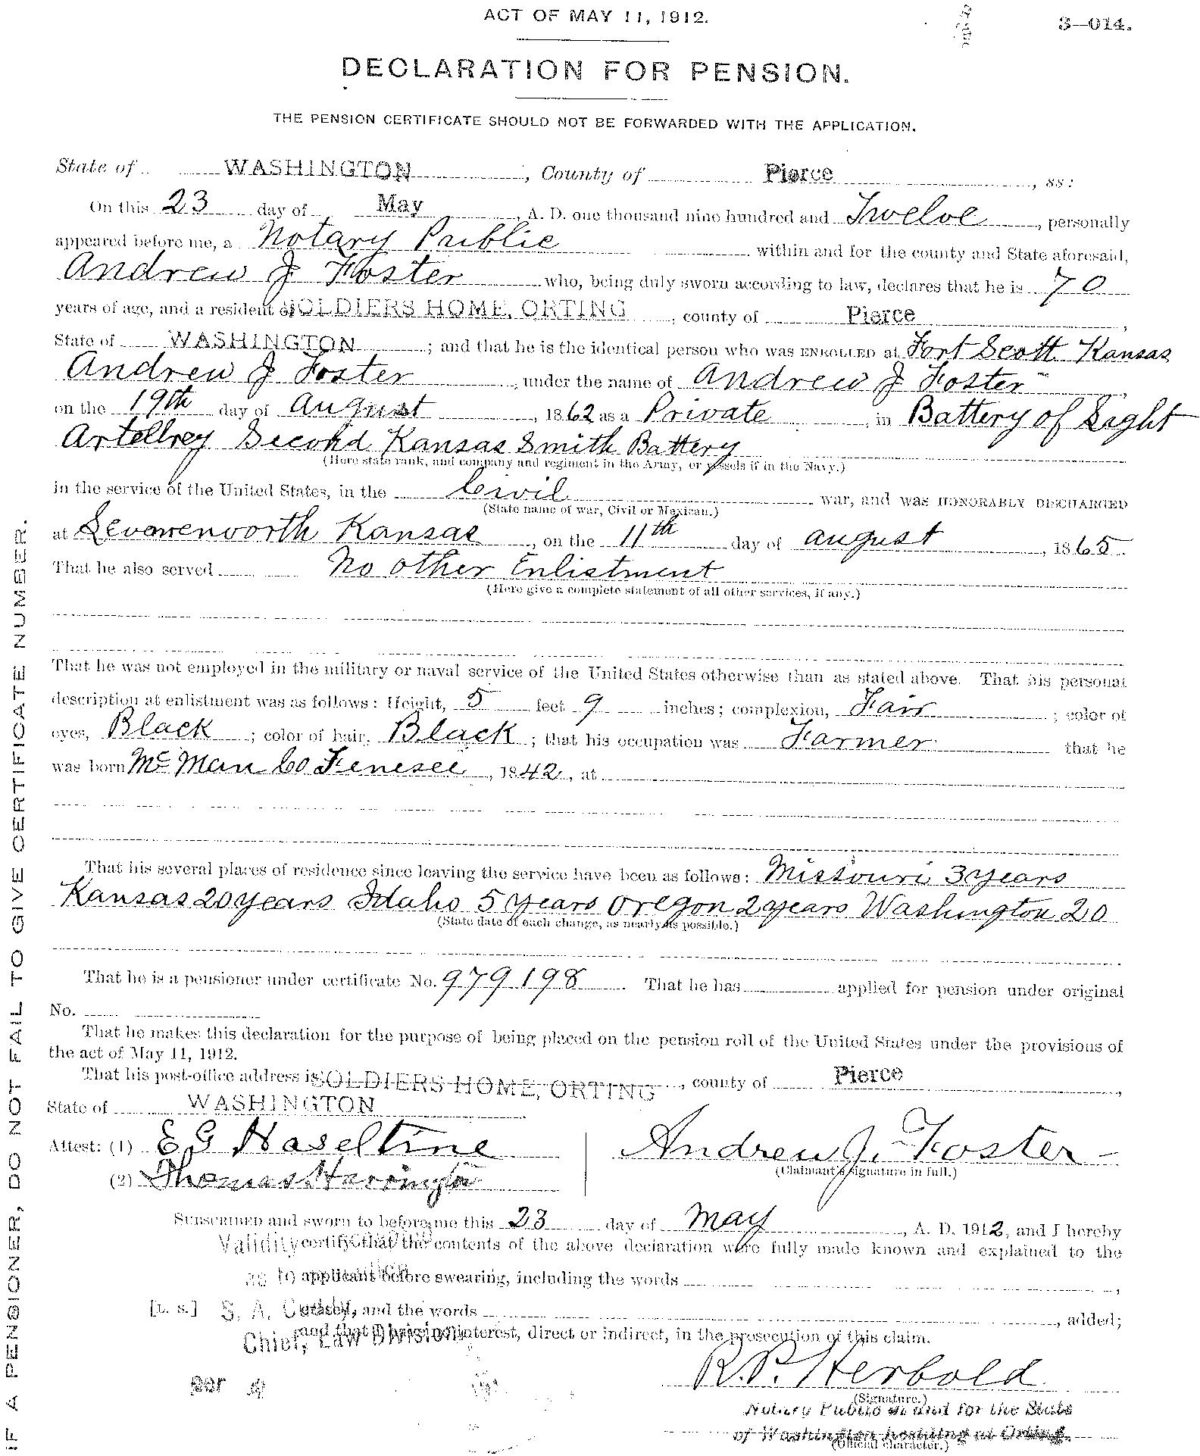 ACT OF MAY 11, 1912.
3—014.
DECLARATION FOR PENSION.
THE PENSION CERTIFICATE SHOULD NOT BE FORWARDED WITH THE APPLICATION.
State of WASHINGTON, County of Pierce, ss:
On this 23 day of May, A. D. one thousand nine hundred and Twelve, personally
appeared before me, a Notary Public within and for the county and State aforesaid,
Andrew J Foster who, being duly sworn according to law, declares that he is 70
years of age, and a resident of SOLDIERS HOME, ORTING, county of Pierce,
State of WASHINGTON; and that he is the identical person who was ENROLLED at Fort Scott Kansas
Andrew J Foster, under the name of Andrew J Foster,
on the 19th day of August, 1862 as a Private, in Battery of Light
Artellrey Second Kansas Smith Battery
(Here state rank, and company and regiment in the Army, or vessels if in the Navy.)
in the service of the United States, in the Civil war, and was HONORABLY DISCHARGED
(State name of war, Civil or Mexican.)
at Levenworth Kansas, on the 11th day of august, 1865.
That he also served No other Enlistment
(Here give a complete statement of all other services, if any.)
That he was not employed in the military or naval service of the United States otherwise than as stated above. That his personal
description at enlistment was as follows: Height, 5 feet 9 inches; complexion, Fair; color of
eyes, Black; color of hair, Black; that his occupation was Farmer that he
was born Mc Man Co Tenesee, 1842, at
That his several places of residence since leaving the service have been as follows: Missouri 3 years
Kansas 20 years Idaho 5 years Oregon 2 years Washington 20
(State date of each change, as nearly as possible.)
That he is a pensioner under certificate No. 979198. That he has applied for pension under original
No.
That he makes this declaration for the purpose of being placed on the pension roll of the United States under the provisions of
the act of May 11, 1912.
That his post-office address is SOLDIERS HOME, ORTING, county of Pierce,
State of WASHINGTON
Attest: (1) E G Haseltine
Andrew J. Foster
(Claimant's signature in full.)
(2) Thomas Harrington
SUBSCRIBED and sworn to before me this 23 day of May, A. D. 1912, and I hereby
certify that the contents of the above declaration were fully made known and explained to the
applicant before swearing, including the words,
[L. S.] erased, and the words, added;
and that I have no interest, direct or indirect, in the prosecution of this claim.
Validity
as to
S. A. Cuddy,
Chief, Law Division.
per
R. P. Herbold
(Signature.)
Notary Public in and for the State
of Washington residing at Orting.
(Official character.)
IF A PENSIONER, DO NOT FAIL TO GIVE CERTIFICATE NUMBER.